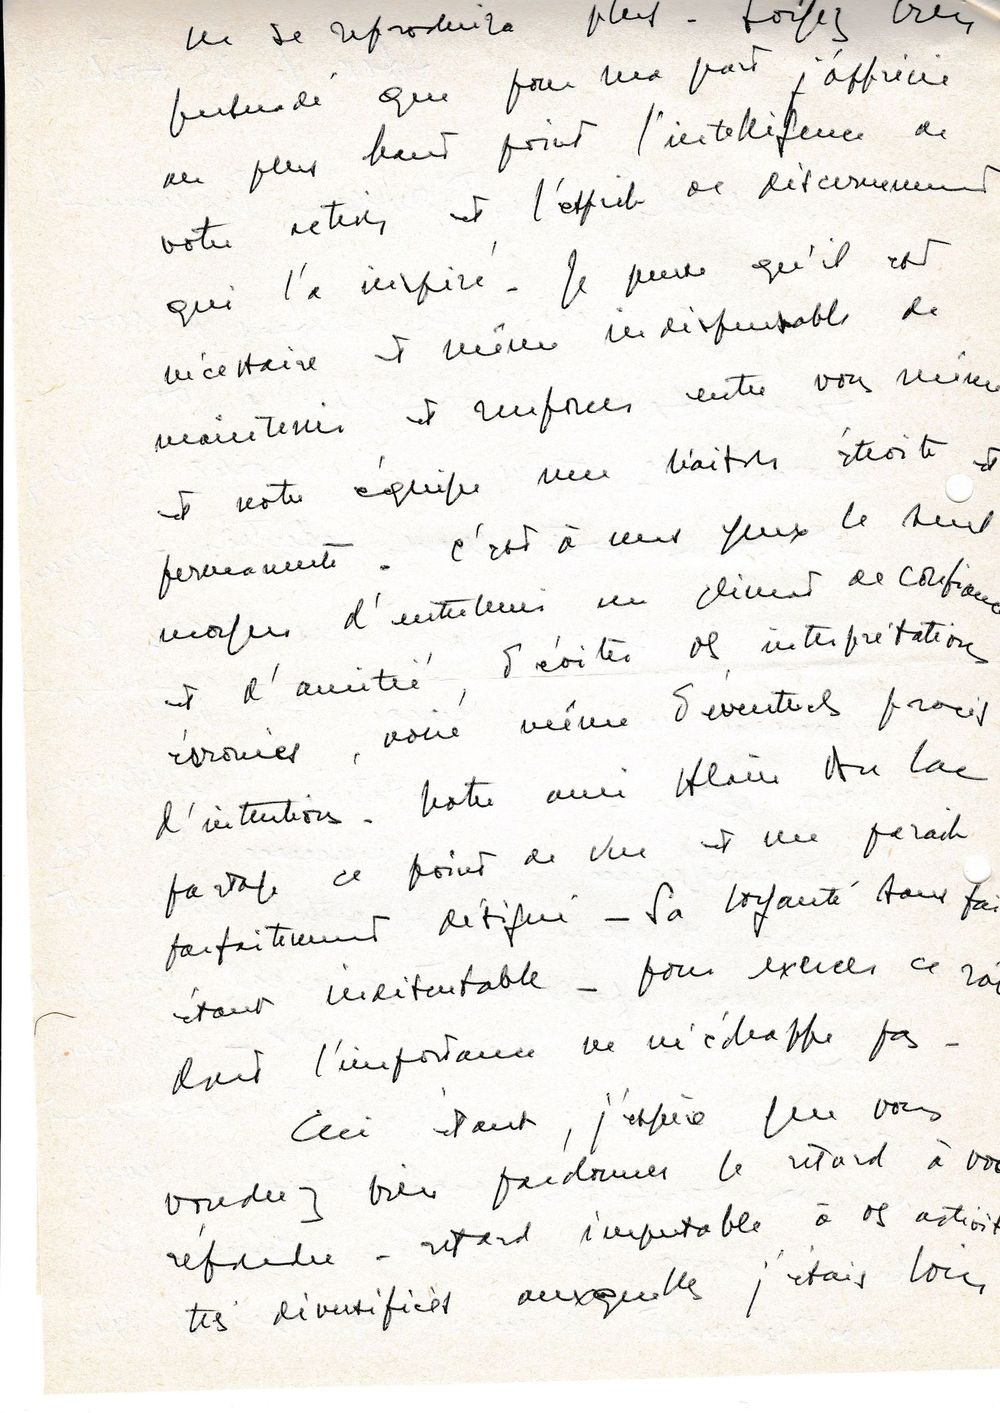 ne se reproduira plus - Soyez bien
persuadé que pour ma part j'apprécie
au plus haut point l'intelligence de
votre action et l'esprit de discernement
qui l'a inspiré - Je pense qu'il est
nécessaire et même indispensable de
maintenir et renforcer entre vous même
et notre équipe une liaison étroite et
permanente - c'est à mes yeux le seul
moyen d'entretenir un climat de confiance
et d'amitié, d'éviter des interprétations
érronées, voire même d'éventuels procès
d'intention - Notre ami Alain du Lac
partage ce point de vue et me parait
parfaitement désigné - Sa loyauté sans fai
étant indiscutable - pour exercer ce rôl
dont l'importance ne m'échappe pas -
Ceci étant, j'espère que vous
voudrez bien pardonner le retard à vou
répondre - retard imputable à des activit
tés diversifiées auxquelles j'étais loin